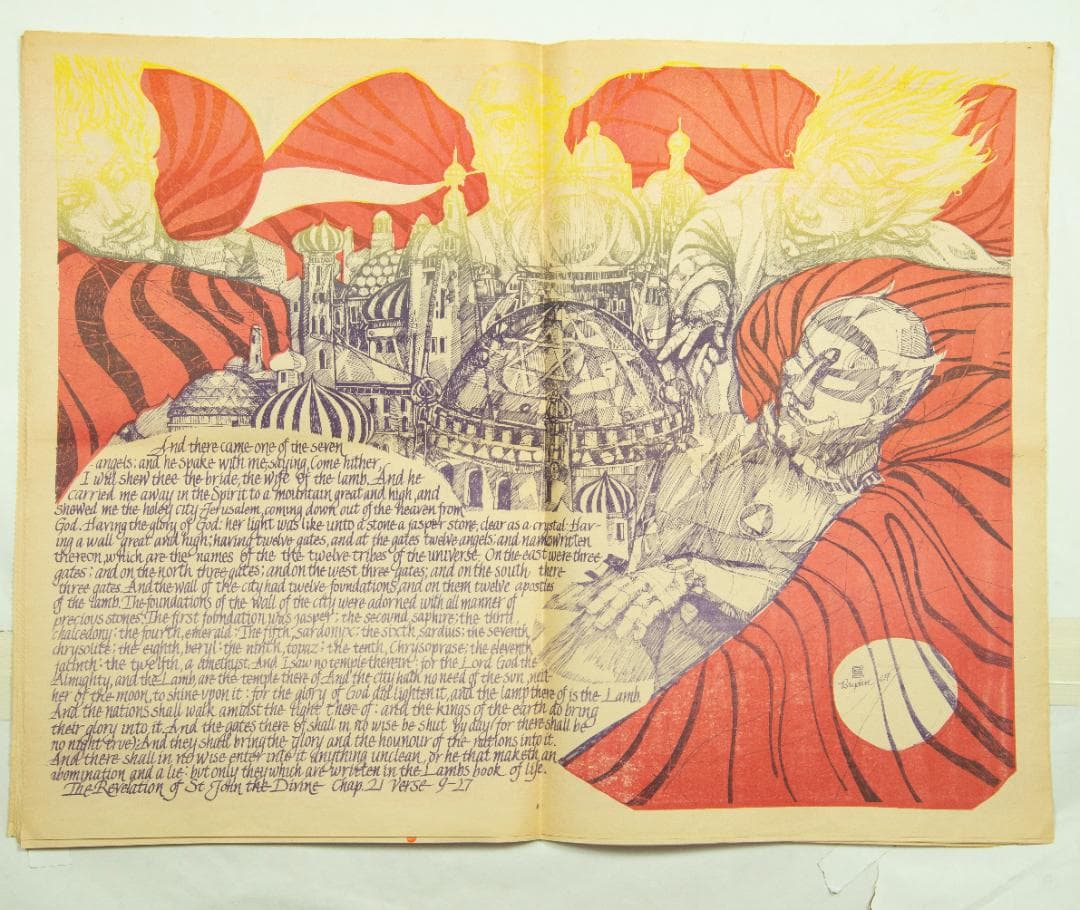 And there came one of the seven
angels: and he spake with me, saying, Come hither,
I will shew thee the bride, the wife of the lamb. And he
carried me away in the Spirit to a mountain great and high, and
showed me the holey city Jerusalem, coming down out of the heaven from
God. Having the glory of God: her light was like unto a stone a jasper stone, clear as a crystal. Hav-
ing a wall great and high; having twelve gates, and at the gates twelve angels; and names written
thereon, which are the names of the twelve tribes of the universe. On the east were three
gates; and on the north three gates; and on the west three gates; and on the south there
three gates. And the wall of the city had twelve foundations, and on them twelve apostles
of the lamb. The foundations of the wall of the city were adorned with all manner of
precious stones. The first foundation was jasper; the second saphire; the third
chalcedony; the fourth, emerald; The fifth, sardonyx; the sixth sardius; the seventh
chrysolite; the eighth, beryl; the ninth, topaz; the tenth, Chrysoprase; the eleventh
jacinth; the twelfth, a amethyst. And I saw no temple therein: for the Lord God the
Almighty, and the Lamb are the temple there of And the city hath no need of the sun, neit-
her of the moon, to shine upon it: for the glory of God did lighten it, and the lamp there of is the Lamb.
And the nations shall walk amidst the light there of: and the kings of the earth do bring
their glory into it. And the gates there of shall in no wise be shut by day (for there shall be
no night there): And they shall bring the glory and the hounour of the nations into it.
And there shall in no wise enter into it anything unclean, or he that maketh an
abomination and a lie: but only they which are written in the Lambs book of life.
The Revelation of St John the Divine Chap. 21 Verse 9-27